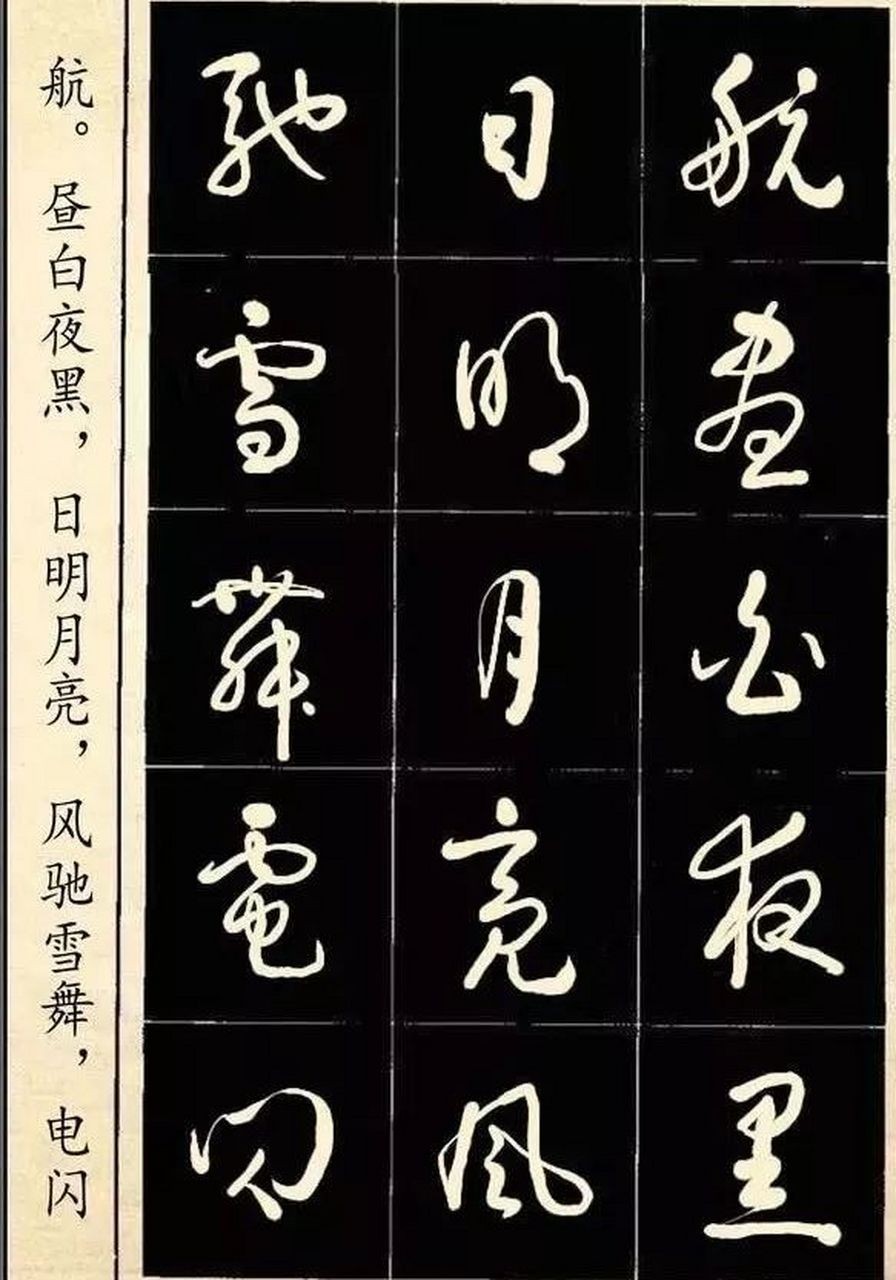 航晝白夜黑
日明月亮風
馳雪舞電閃
航。昼白夜黑，日明月亮，风驰雪舞，电闪